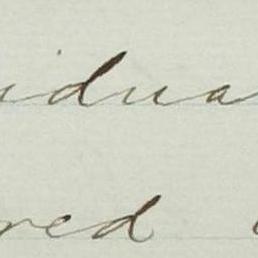 idua
red